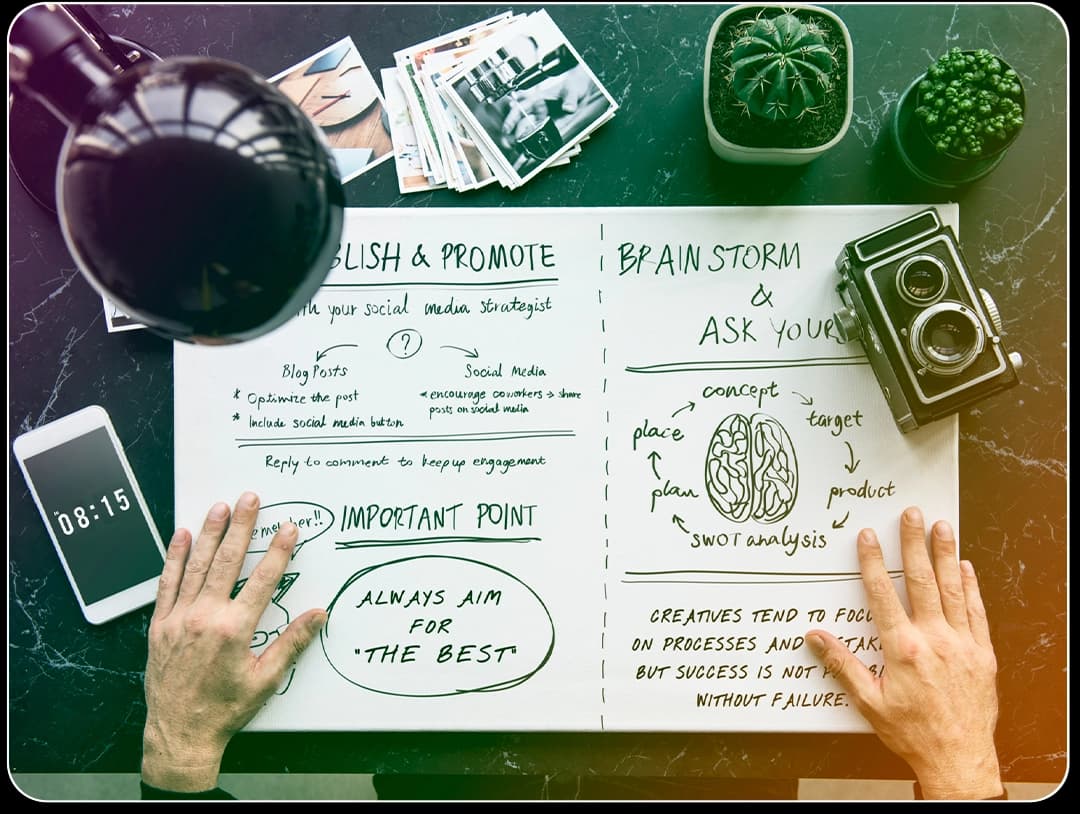 08:15
BLISH & PROMOTE
your social media strategist
?
Blog Posts
Social Media
* Optimize the post
* Include social media button
encourage coworkers → share
posts on social media
Reply to comment to keep up engagement
IMPORTANT POINT
ALWAYS AIM
FOR
"THE BEST"
BRAINSTORM
&
ASK YOUR
concept
target
product
SWOT analysis
plan
place
CREATIVES TEND TO
ON PROCESSES AND
BUT SUCCESS IS NOT
WITHOUT FAILURE.